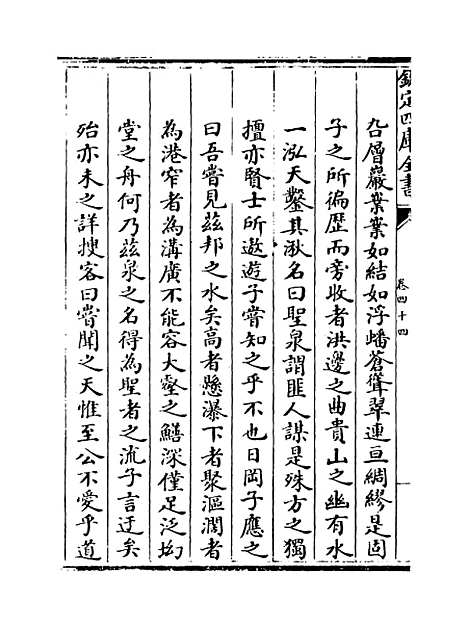 欽定四庫全書
卷四十四
㕣層巖業業如結如浮嶓蒼聳翠連亘綢繆是固
子之所徧歴而旁收者洪邊之曲貴山之幽有水
一泓天鑿其湫名曰聖泉謂匪人謀是殊方之獨
擅亦賢士所遨遊子嘗知之乎不也日岡子應之
曰吾嘗見茲邦之水矣高者懸瀑下者聚漚濶者
為港窄者為溝廣不能容大壑之鱔深僅足泛坳
堂之舟何乃茲泉之名得為聖者之流子言迂矣
殆亦未之詳搜客曰嘗聞之天惟至公不愛乎道